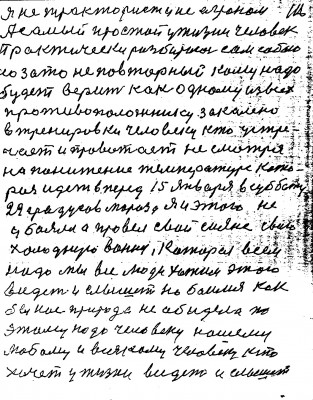 Я не тракторист и не агроном
А самый простой у жизни человек
Практически разбираюсь сам собою
но зато неповторный кому надо
будет верить как одному из всех
противоположнику закалено
в тренировки человеку кто устре-
чает и провожает не смотря
на понижение температуре кото-
рая идет вперед 15 января в субботу
29 градусов мороза, я и этого не
убоялся провел свой сияне свого
холодную ванну, Которая всем
надо мы все люди хотим этого
видеть и слышет но боимся как
бы нас природа не обидела по
этому надо человеку нашему
любому и всякому человеку кто
хочет у жизни видеть и слышит